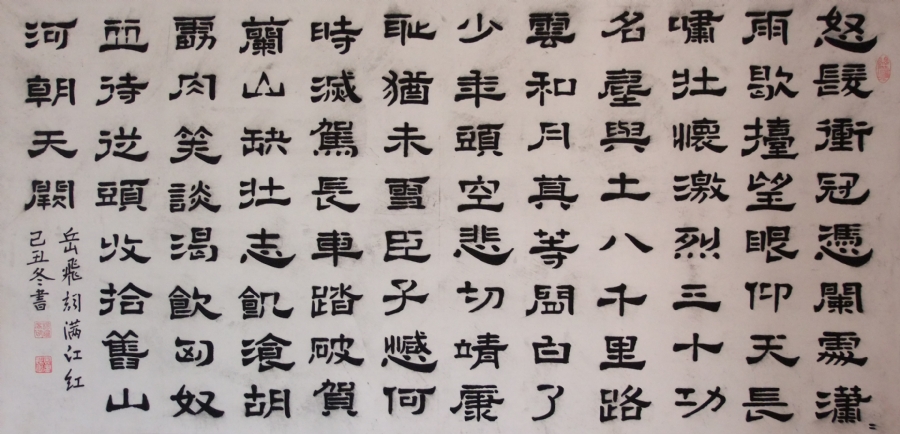 怒髮衝冠憑闌處瀟〻
雨歇擡望眼仰天長
嘯壯懷激烈三十功
名塵與土八千里路
雲和月莫等閒白了
少年頭空悲切靖康
恥猶未雪臣子憾何
時滅駕長車踏破賀
蘭山缺壯志飢湌胡
虜肉笑談渴飲匈奴
血待從頭收拾舊山
河朝天闕
岳飛詞满江红
己丑冬書